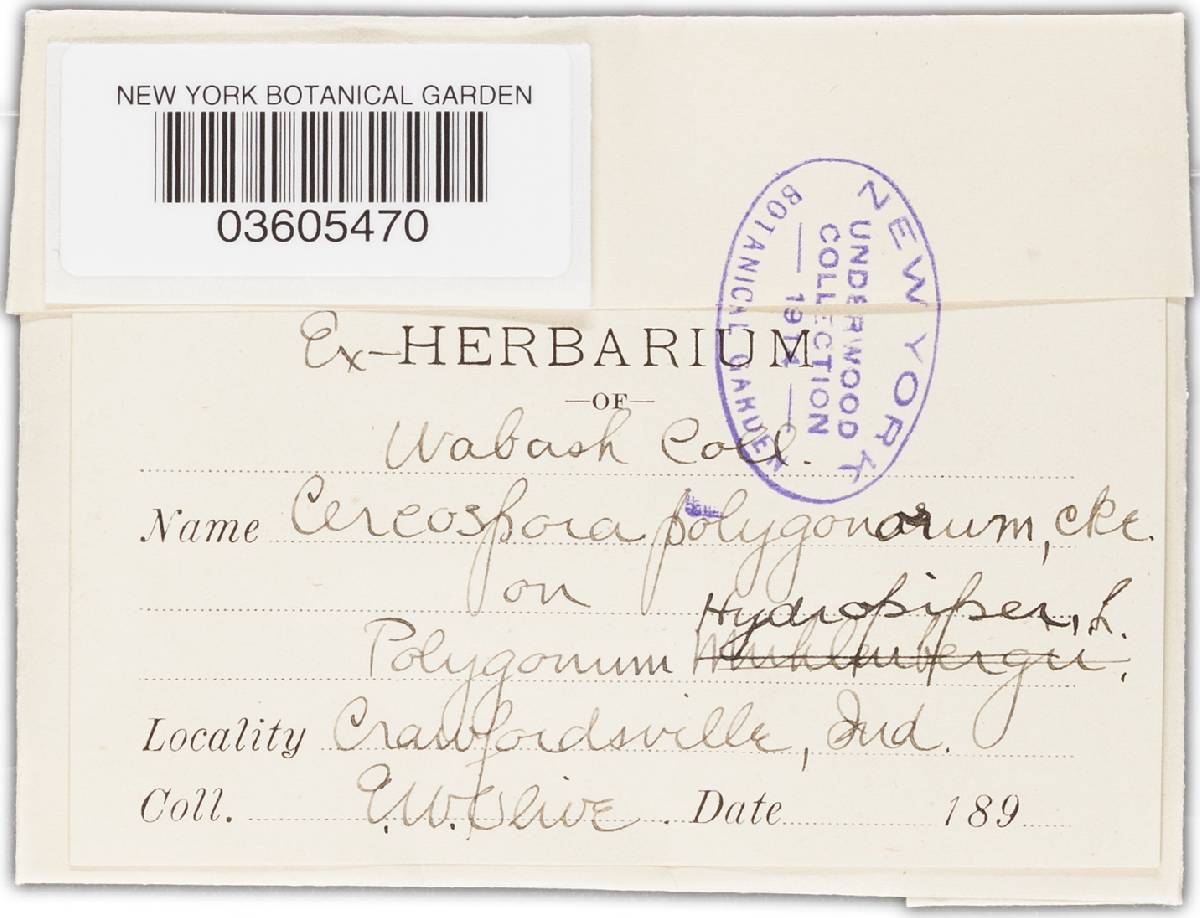 NEW YORK BOTANICAL GARDEN
03605470
NEW YORK
UNDERWOOD
COLLECTION
BOTANICAL GARDEN
Ex-HERBARIUM
—OF—
Wabash Coll.
Name Cercospora polygonorum, Cke.
on
Hydropiper, L.
Polygonum Muhlenbergii.
Locality Crawfordsville, Ind.
Coll. E.W. Olive. Date 189